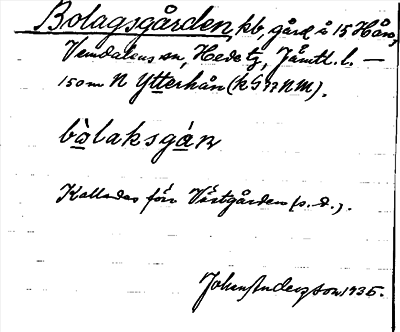 Bolagsgården, kb, gård å 15 Håns,
Vemdalens sn, Hede tg, Jämtl. l. —
150 m N Ytterhån (kGnNM).
bòlaksgàṇ
Kallades förr Västgården (s. d.).
Johan Andersson 1935.